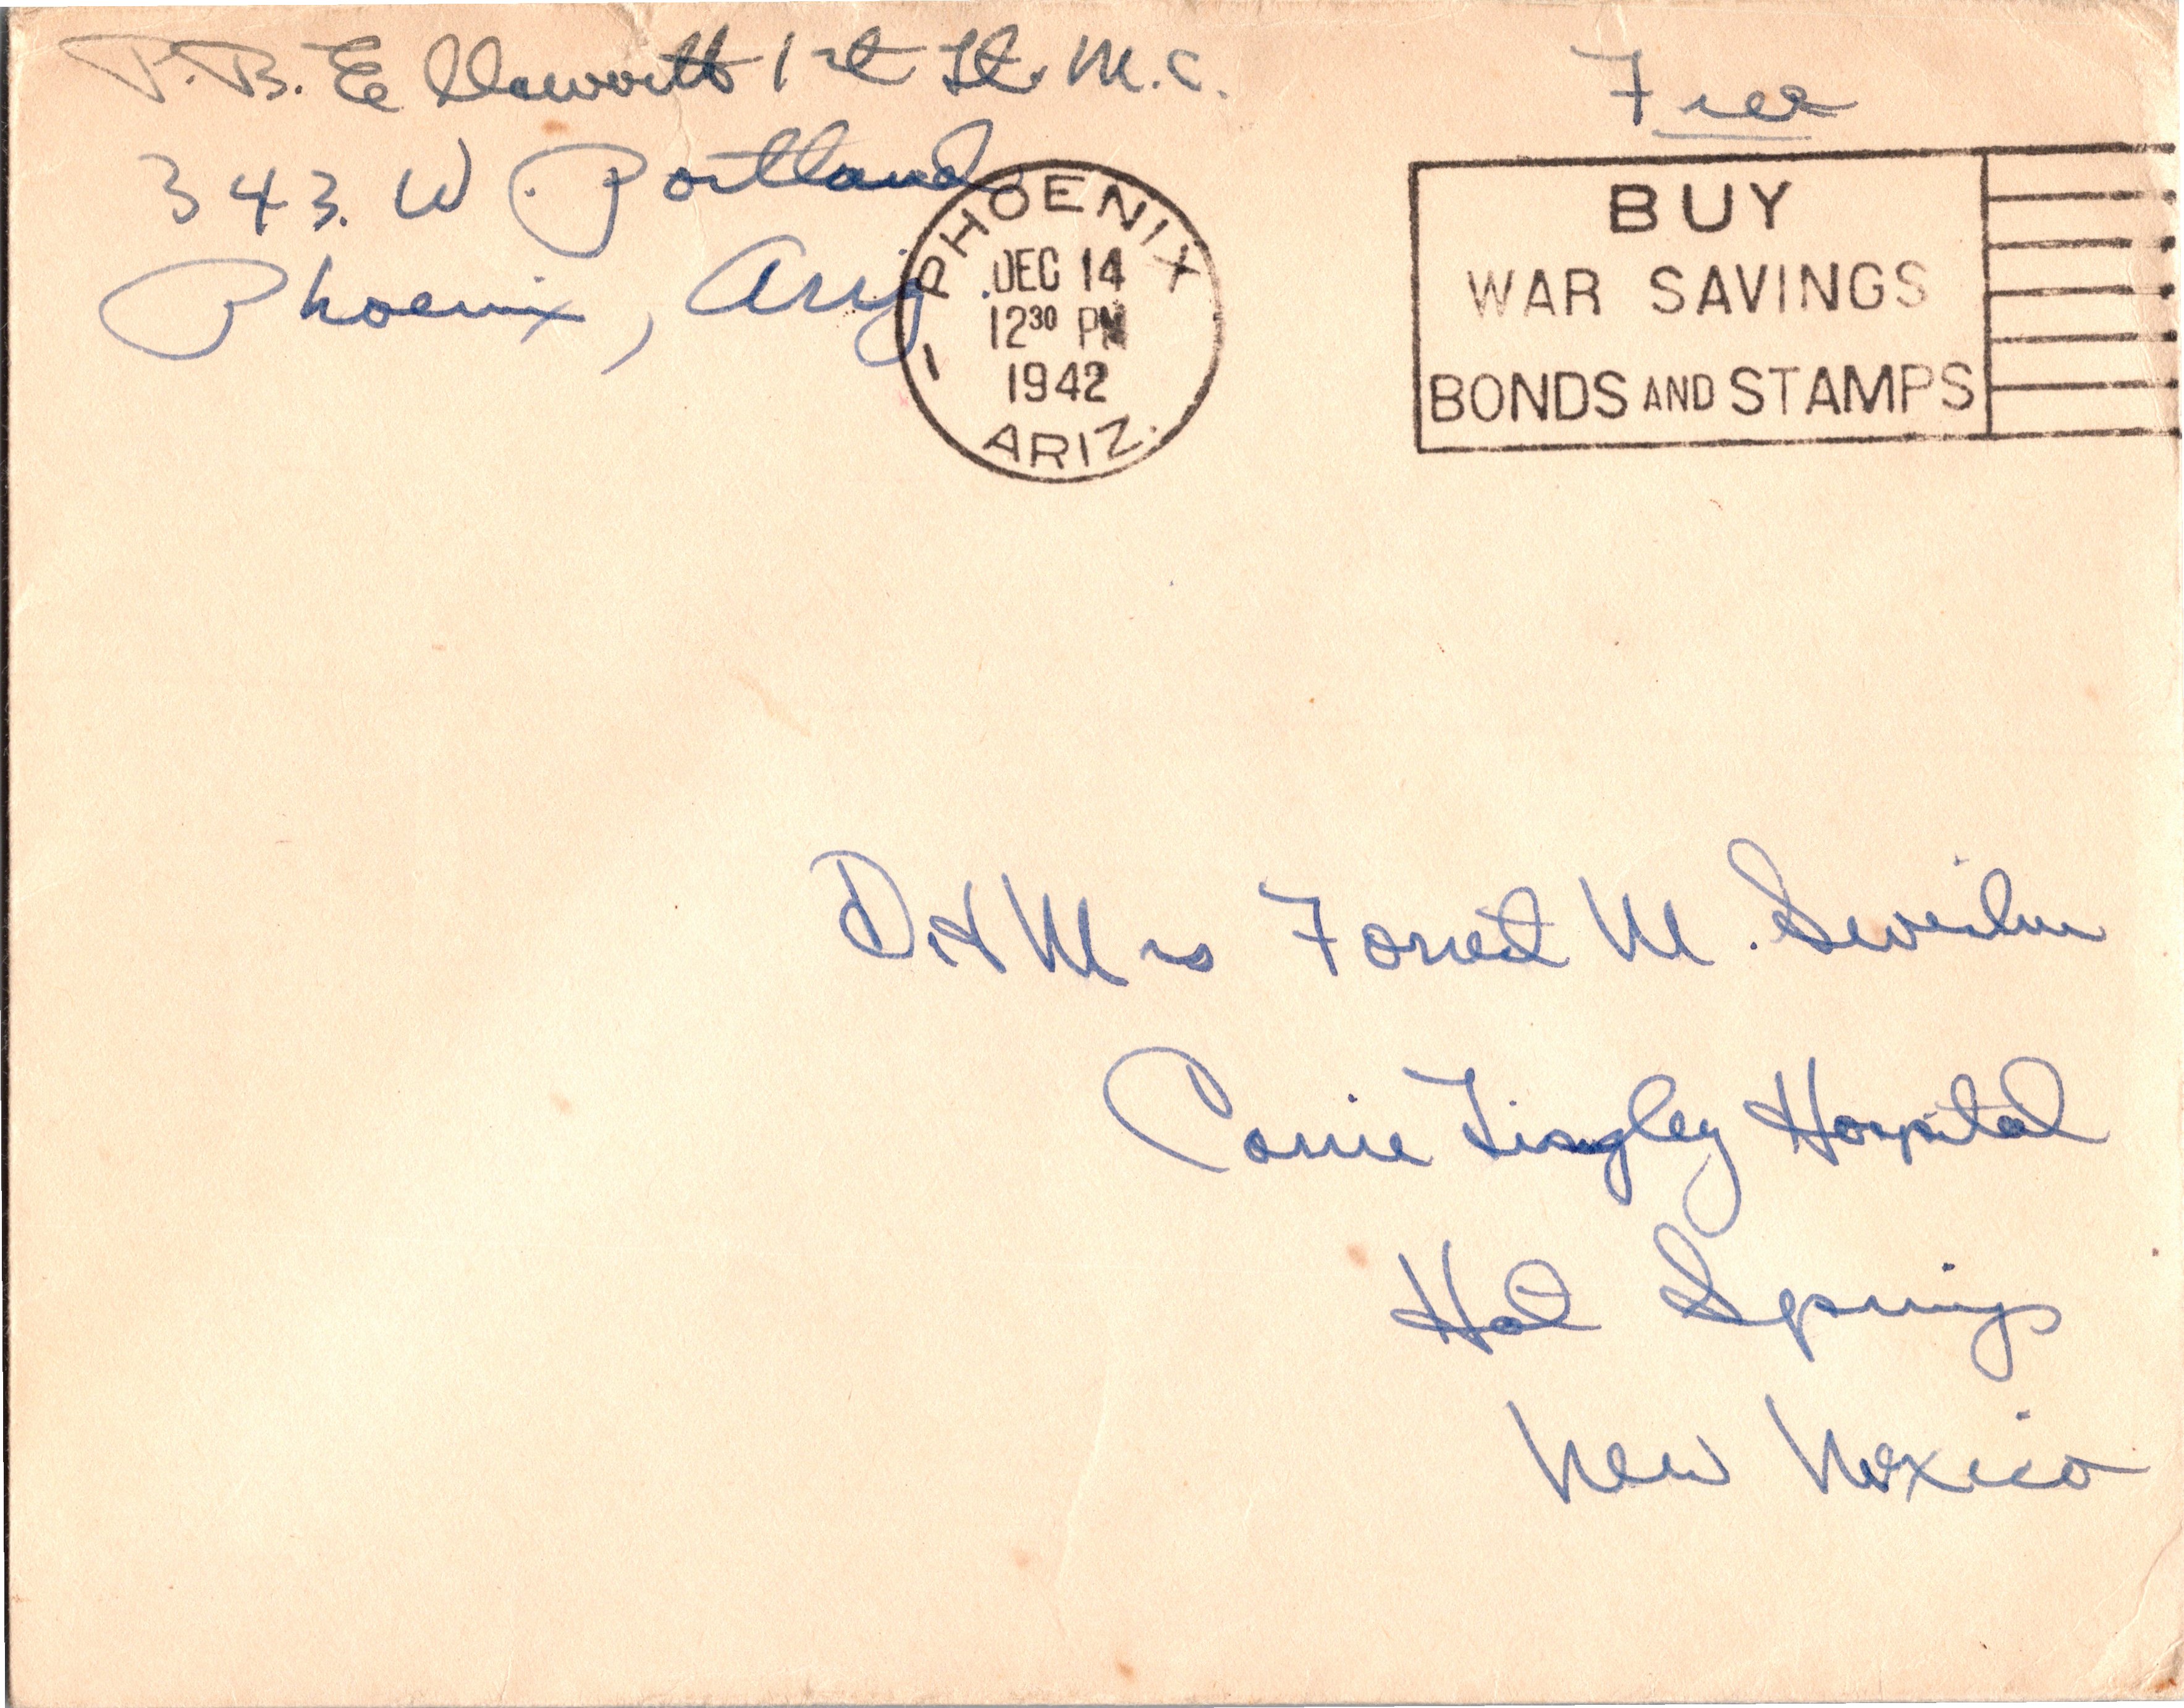 P.B. Ellsworth 1st Lt. M.C.
343. W Portland
Phoenix, Ariz
Free
PHOENIX
DEC 14
12³⁰ PM
1942
ARIZ.
BUY
WAR SAVINGS
BONDS AND STAMPS
Dr & Mrs Forrest M.
Carrie Tingley Hospital
Hot Springs
New Mexico